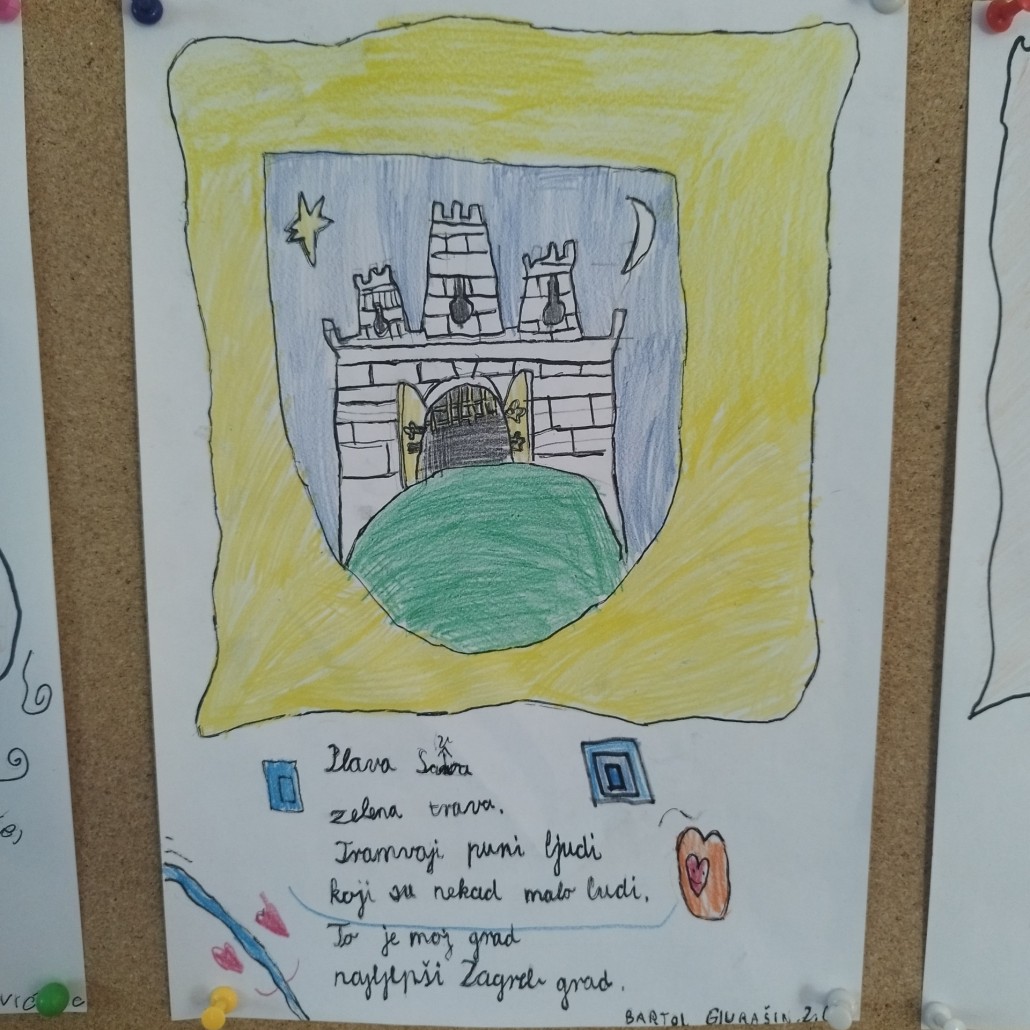 Plava Sava
zelena trava.
Tramvaji puni ljudi
koji su nekad malo ludi.
To je moj grad
najljepši Zagreb grad.
BARTOL GIURAŠIN 2.